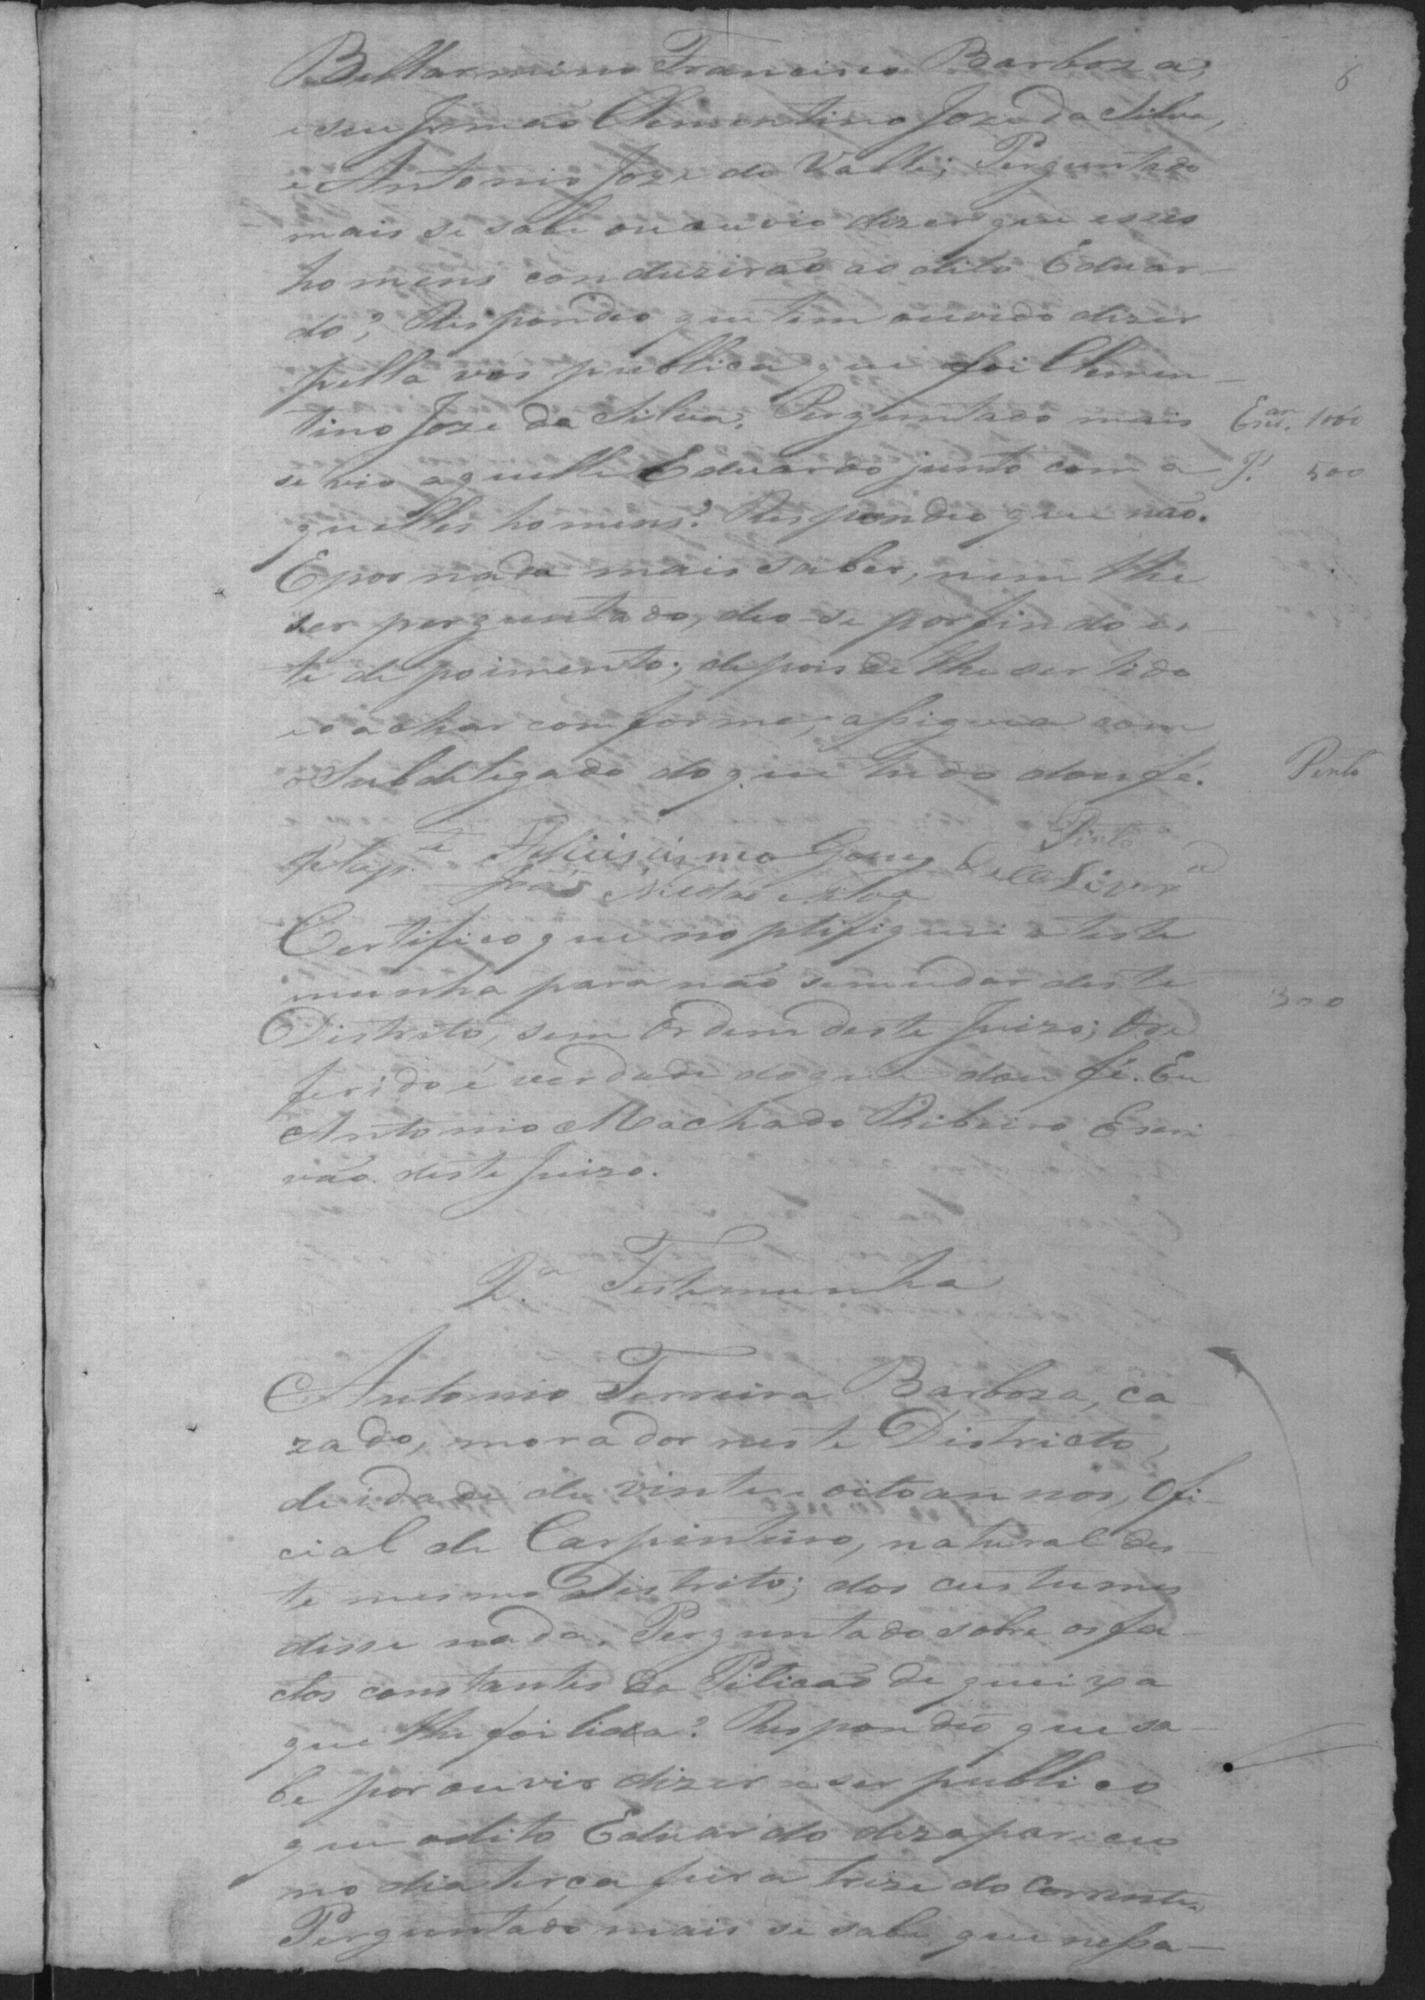 6
Bellarmino Francisco Barboza,
e seu Irmão Clementino Joze da Silva,
e Antonio Joze do Valle; Perguntado
mais se sabe ou ouvio dizer que esses
homens conduzirão ao dito Eduar-
do? Respondeo que tem ouvido dizer
pella vós publica que foi Clemen-
tino Joze da Silva. Perguntado mais
se vio aquelle Eduardo junto com a
quelles homens? Respondeo que não.
E por nada mais saber, nem lhe
ser perguntado, deo-se por findo es-
te depoimento; depois de lhe ser lido
e o achar conforme, assigna com
o Subdelegado do que tudo dou fé.
Pinto
Gomes de Oliveira
Certifico que notifiquei a teste
munha para não se mudar deste
Distrito, sem Ordem deste Juizo; O re
ferido é verdade do que dou fé. Eu
Antonio Machado Ribeiro Escri
vão deste Juizo.
2.a Testemunha
Antonio Ferreira Barboza, ca
zado, morador neste Districto,
de idade de vinte e oito annos, Ofi-
cial de Carpinteiro, natural des-
te mesmo Distrito; dos custumes
disse nada. Perguntado sobre os fa-
ctos constantes da Petição de queixa
que lhe foi lida? Respondeo que sa-
be por ouvir dizer e ser publico
que o dito Eduardo dezapareceo
no dia terça feira treze do Corrente.
Perguntado mais se sabe que nessa-
1000
500
Pinto
300